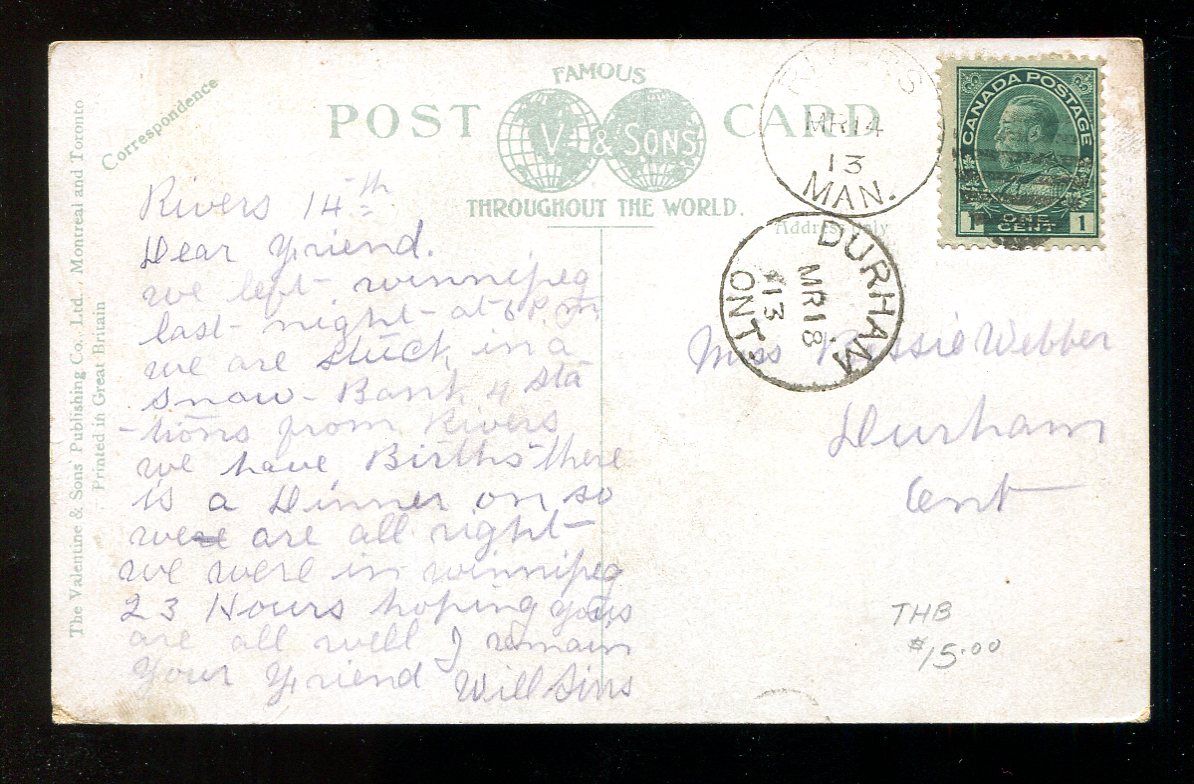 FAMOUS
POST CARD
V. & SONS
THROUGHOUT THE WORLD.
Correspondence
Address only
The Valentine & Sons' Publishing Co. Ltd., Montreal and Toronto
Printed in Great Britain
RIVERS
MR 14
13
MAN.
CANADA POSTAGE
1 ONE CENT 1
DURHAM
MR 18
13
ONT.
Rivers 14th
Dear Friend.
we left winnipeg
last night at 6 P.m.
we are stuck in a
snow - Bank 4 sta
-tions from Rivers
we have Births there
is a Dinner on so
were are all right
we were in winnipeg
23 Hours hoping yous
are all well I remain
Your Friend Will Sins
Miss Bessie Webber
Durham
Ont
THB
$15.00